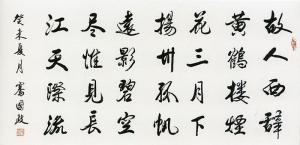 故人西辭
黃鶴樓煙
花三月下
揚州孤帆
遠影碧空
尽惟見長
江天際流
癸未夏月